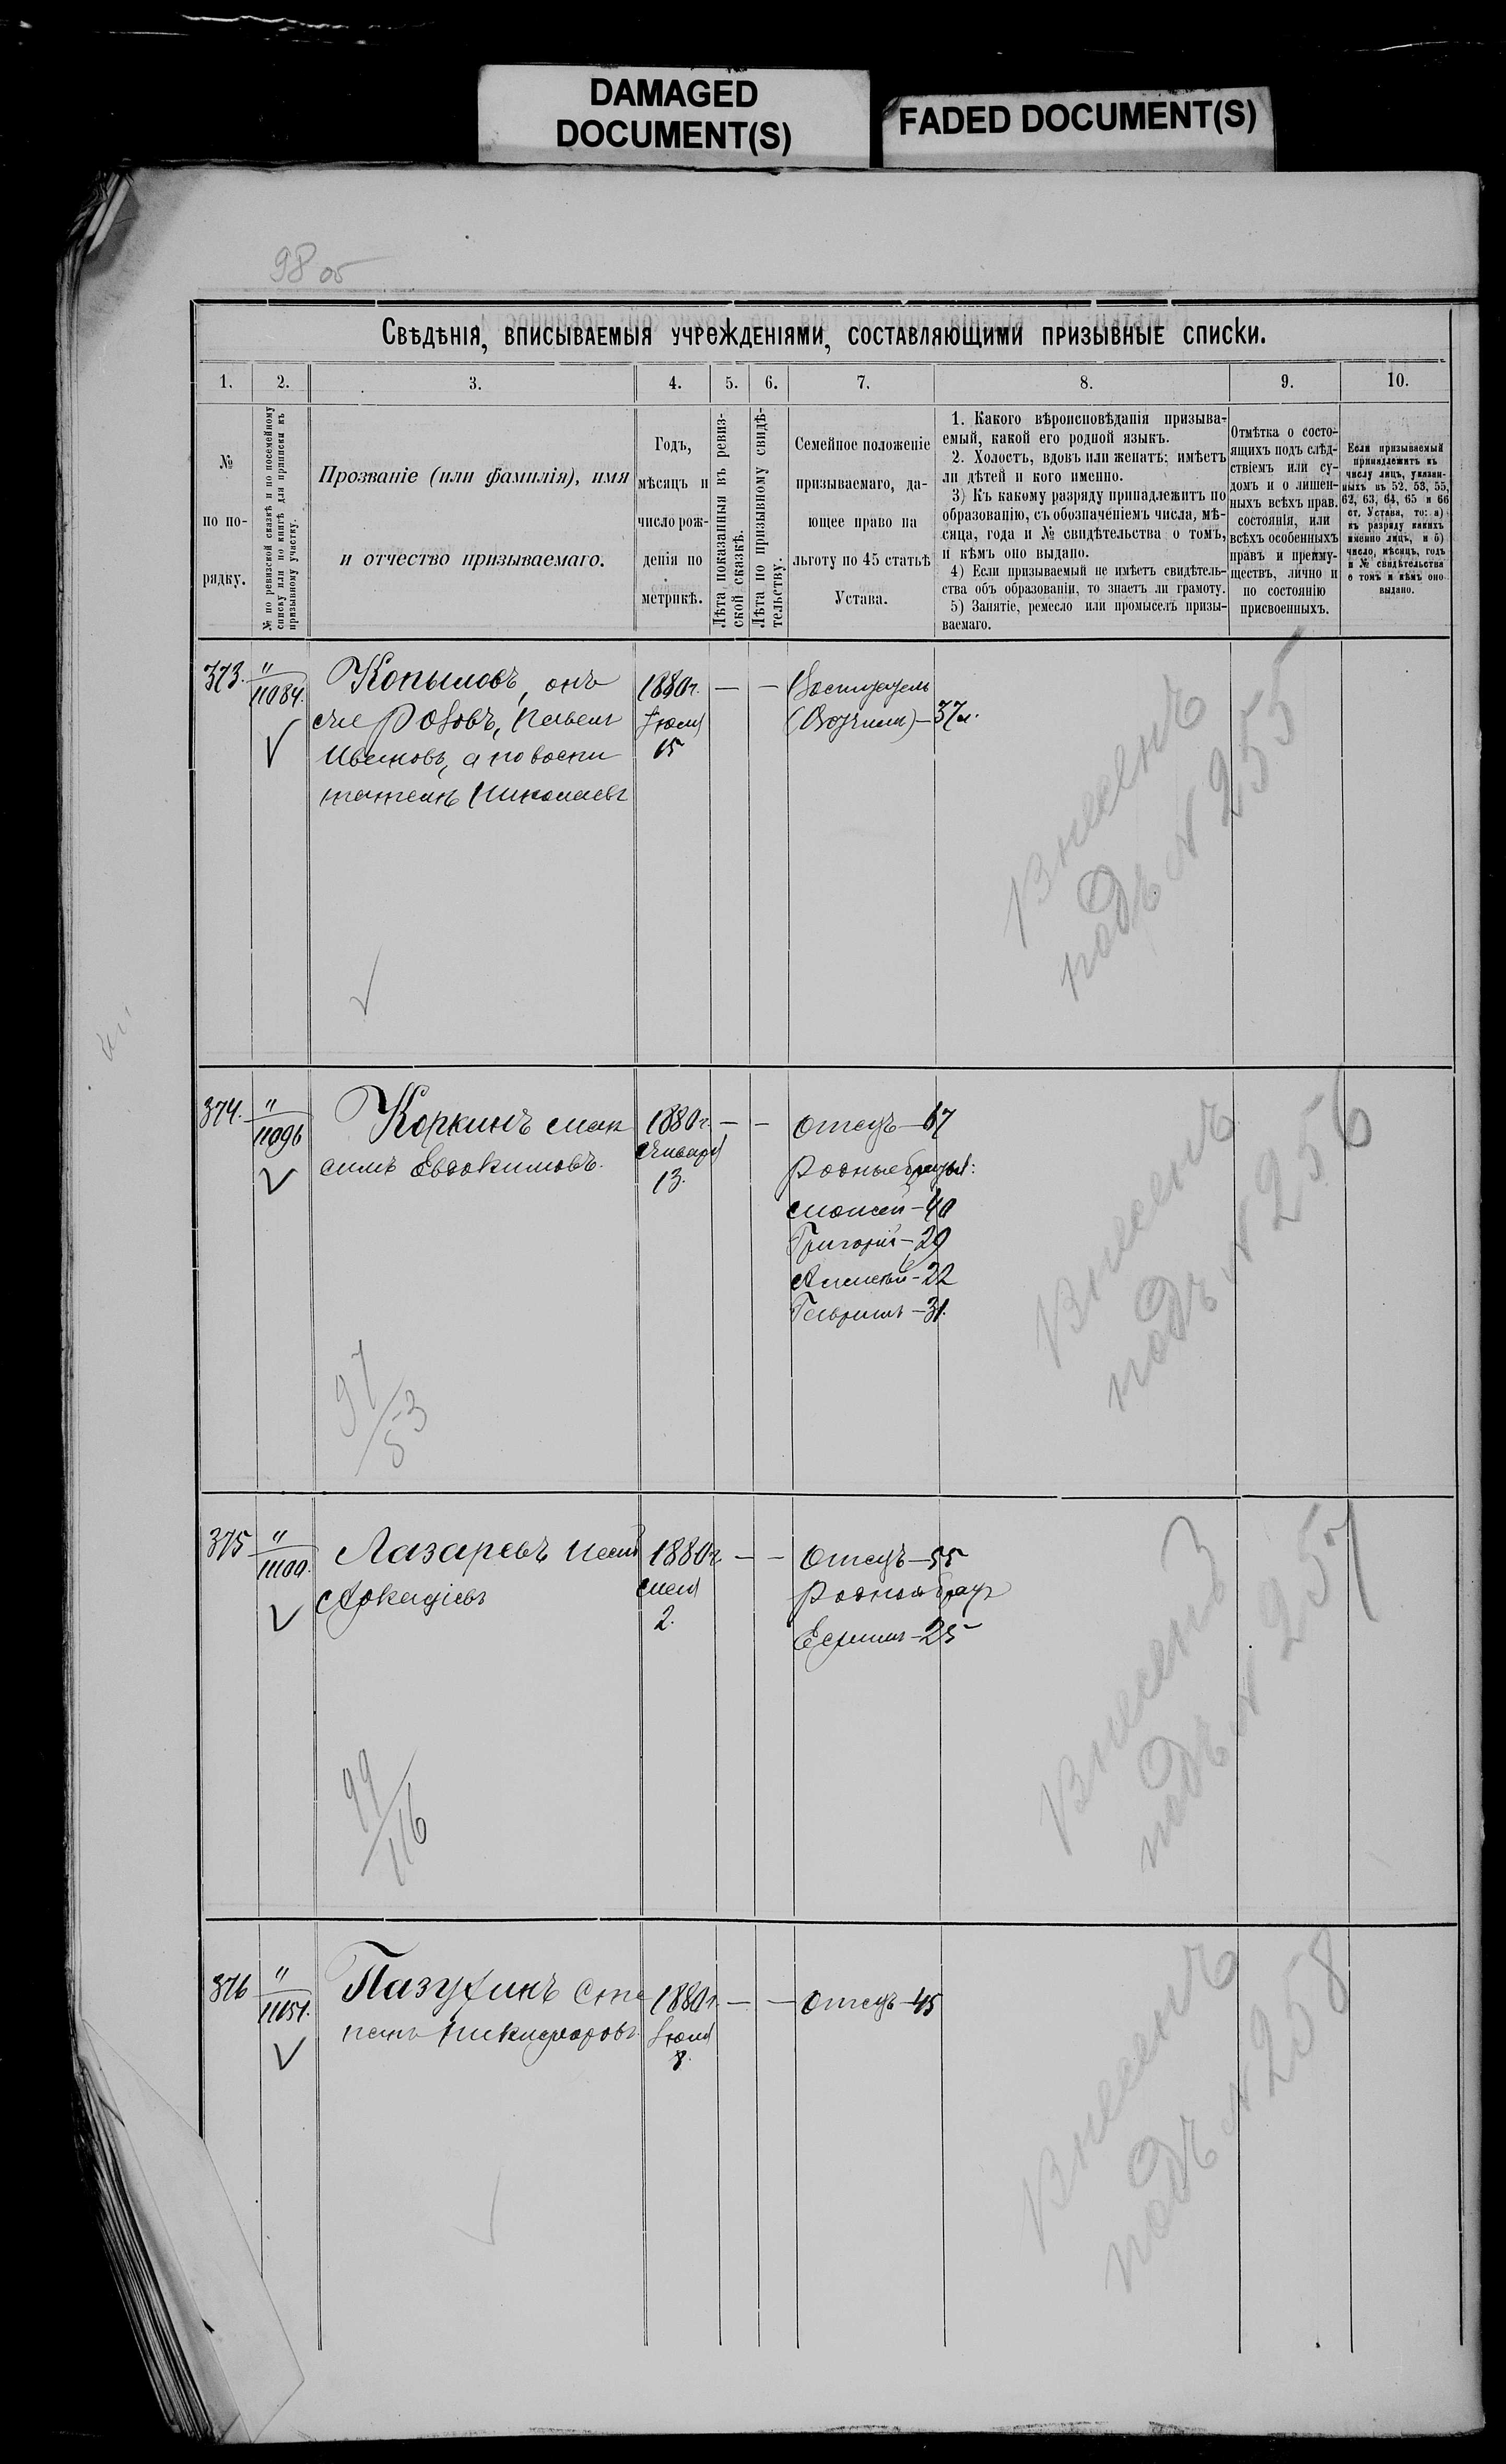 DAMAGED
DOCUMENT(S)
FADED DOCUMENT(S)
98 об
Свѣдѣнія, вписываемыя учрежденіями, составляющими призывные списки.
1.
2.
3.
4.
5.
6.
7.
8.
9.
10.
№
по по-
рядку.
№ по ревизской сказкѣ и по посемейному
списку или по книгѣ для приписки къ
призывному участку.
Прозваніе (или фамилія), имя
и отчество призываемаго.
Годъ,
мѣсяцъ и
число рож-
денія по
метрикѣ.
Лѣта показанныя въ ревиз-
ской сказкѣ.
Лѣта по призывному свидѣ-
тельству.
Семейное положеніе
призываемаго, да-
ющее право на
льготу по 45 статьѣ
Устава.
1. Какого вѣроисповѣданія призыва-
емый, какой его родной языкъ.
2. Холостъ, вдовъ или женатъ; имѣетъ
ли дѣтей и кого именно.
3) Къ какому разряду принадлежитъ по
образованію, съ обозначеніемъ числа, мѣ-
сяца, года и № свидѣтельства о томъ,
и кѣмъ оно выдано.
4) Если призываемый не имѣетъ свидѣтель-
ства объ образованіи, то знаетъ ли грамоту.
5) Занятіе, ремесло или промыселъ призы-
ваемаго.
Отмѣтка о состо-
ящихъ подъ слѣд-
ствіемъ или су-
домъ и о лишен-
ныхъ всѣхъ прав.
состоянія, или
всѣхъ особенныхъ
правъ и преиму-
ществъ, лично и
по состоянію
присвоенныхъ.
Если призываемый
принадлежитъ къ
числу лицъ, указан-
ныхъ въ 52, 53, 55,
62, 63, 64, 65 и 66
ст. Устава, то: а)
къ разряду какихъ
именно лицъ, и б)
число, мѣсяцъ, годъ
и № свидѣтельства
о томъ и кѣмъ оно
выдано.
373. "
11084.
Копыловъ, онъ
же Павелъ
Ивановъ, а по воспи
тателю Николаевъ
1880 г.
Іюля
15
— —
Воспитатель
(Вотчимъ) — 37 л.
Внесенъ
подъ № 255
374. "
11096
Коркинъ Мак
симъ Евдокимовъ.
1880 г.
Января
13.
— —
Отецъ — 67
Родные братья:
Моисей — 40
Григорій — 29
Алексѣй — 22
Гавріилъ — 31.
Внесенъ
подъ № 256
97/53
375 "
11100.
Лазаревъ
Аркадіевъ
1880 г.
Мая
2.
— —
Отецъ — 55
Родной братъ
Ефимъ — 25
Внесенъ
подъ № 257
99/116
376 "
11151.
Пазухинъ Сте
панъ Никифоровъ
1880 г.
Іюля
8.
— —
Отецъ — 45
Внесенъ
подъ № 258